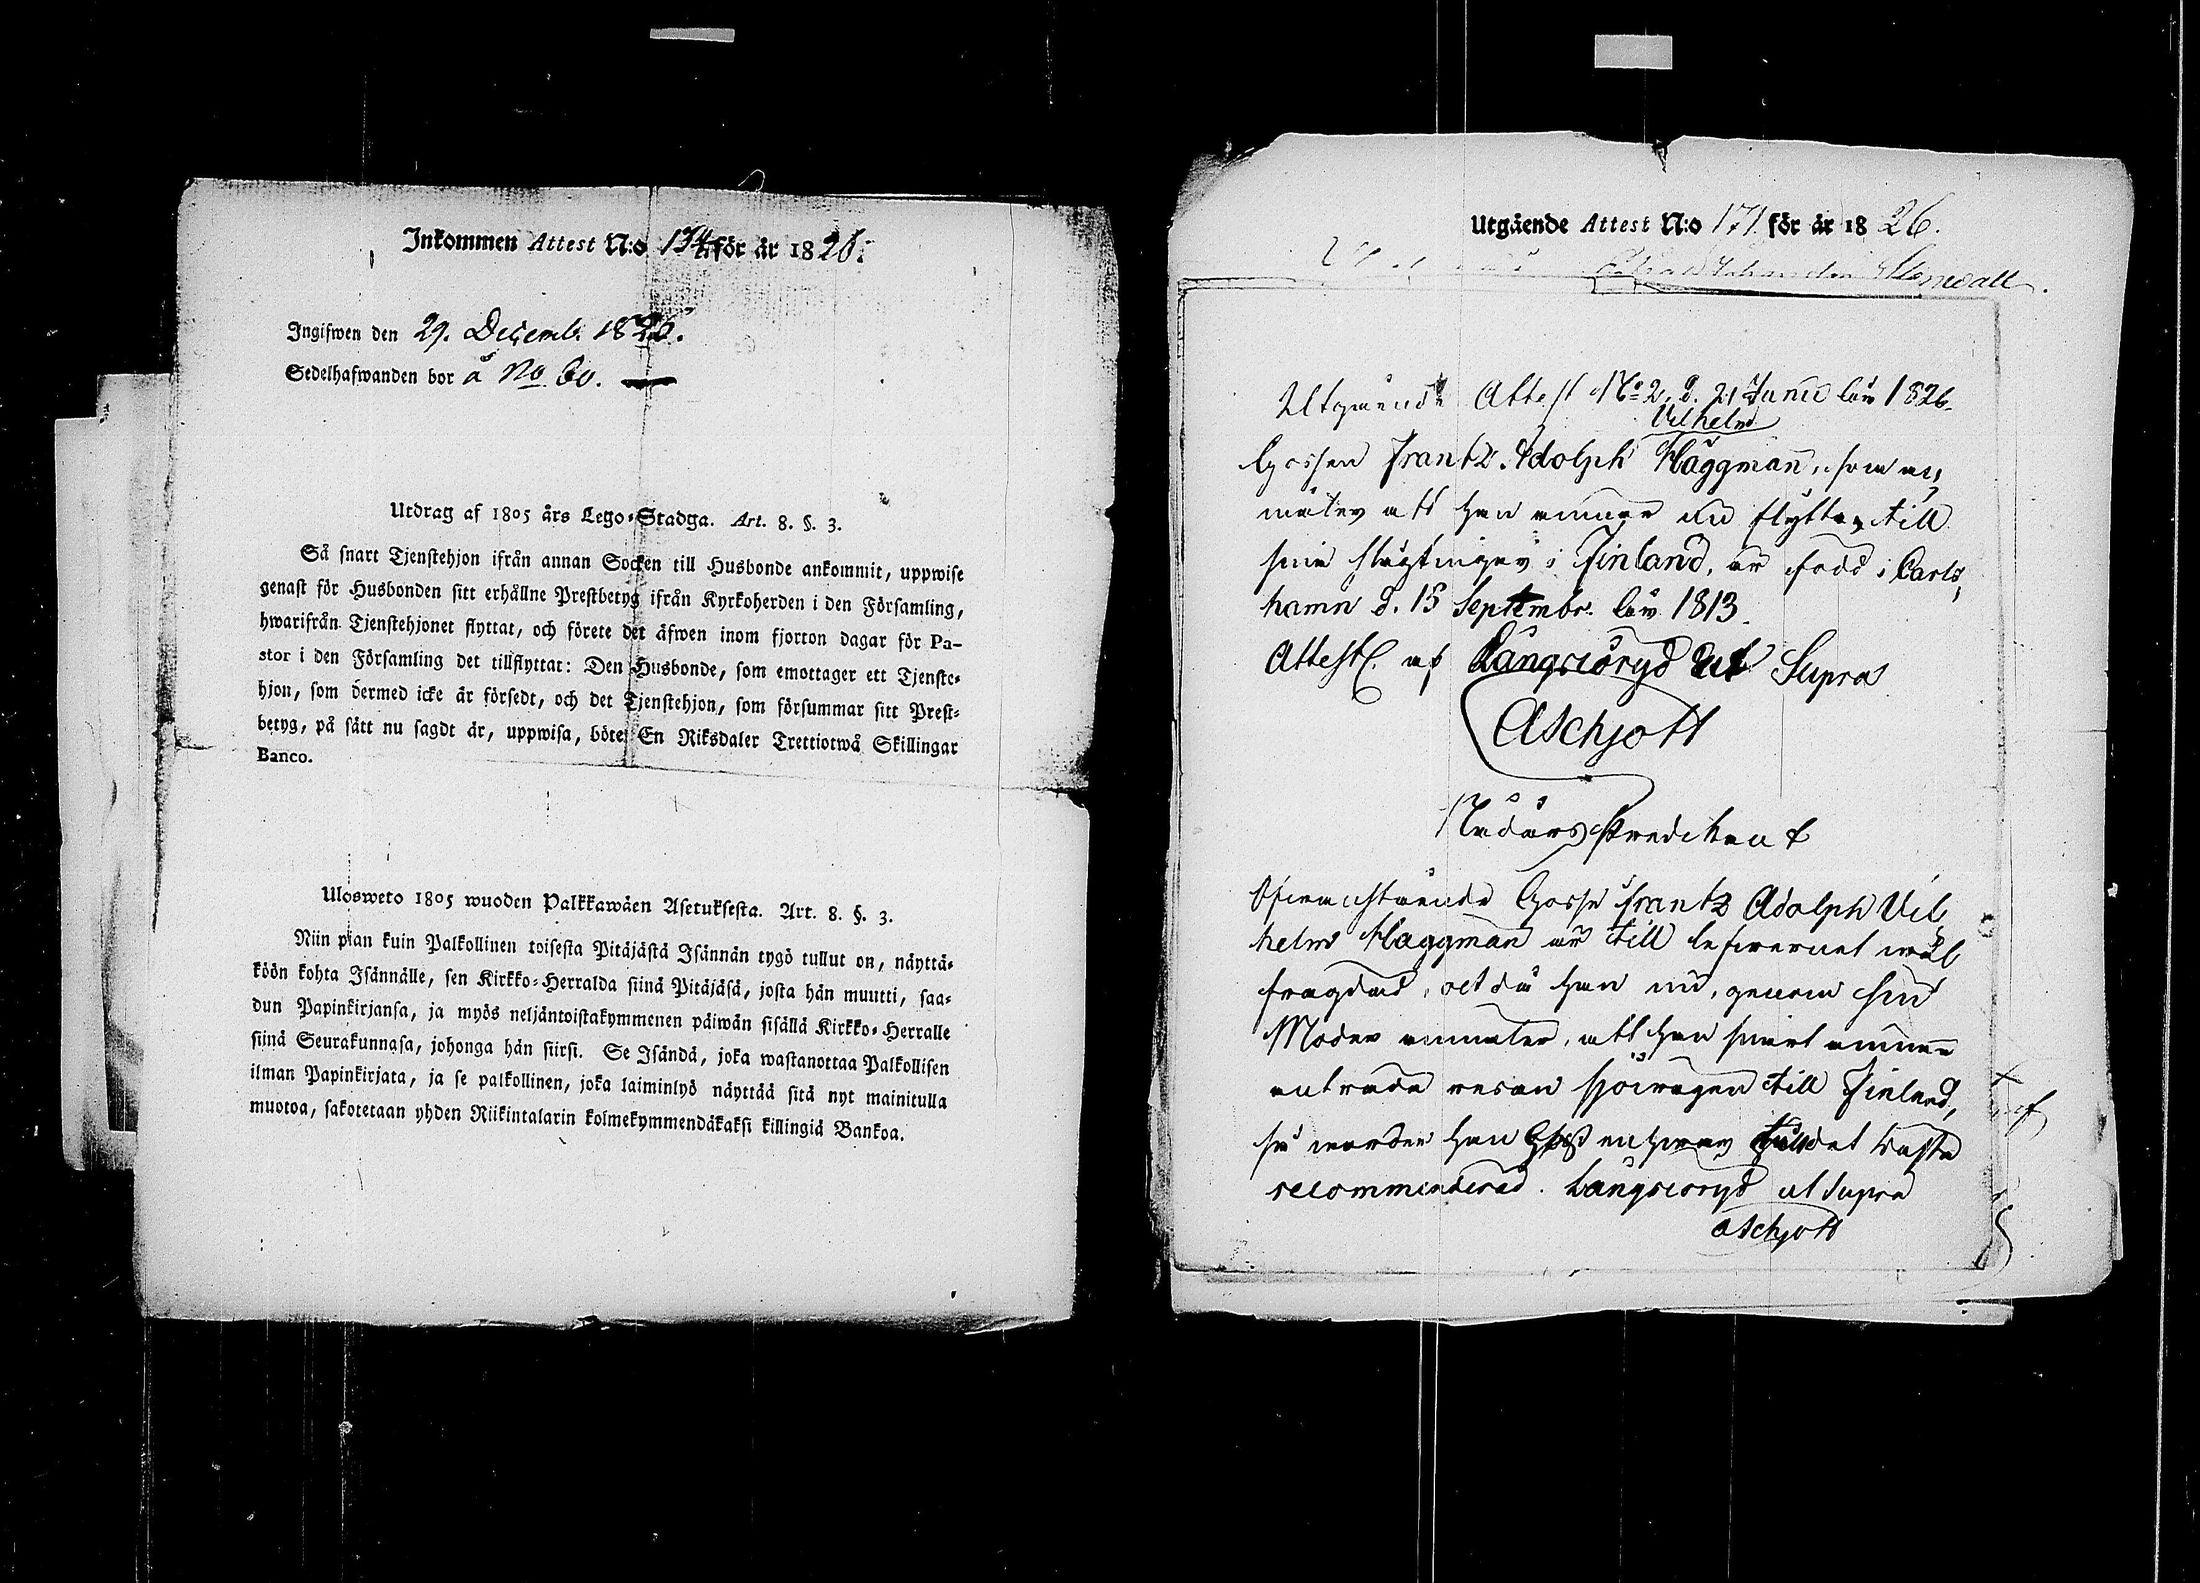 Inkommen Attest N:o 134. för år 1826.
Ingifwen den 29. Decemb. 1826.
Sedelhafwanden bor å No 60.
Utdrag af 1805 års Lego-Stadga. Art. 8. §. 3.
Så snart Tjenstehjon ifrån annan Socken till Husbonde ankommit, uppwise
genast för Husbonden sitt erhållne Prestbetyg ifrån Kyrkoherden i den Församling,
hwarifrån Tjenstehjonet flyttat, och förete det äfwen inom fjorton dagar för Pa-
stor i den Församling det tillflyttat: Den Husbonde, som emottager ett Tjenste-
hjon, som dermed icke är försedt, och det Tjenstehjon, som försummar sitt Prest-
betyg, på sätt nu sagdt är, uppwisa, böte En Riksdaler Trettiotwå Skillingar
Banco.
Ulosweto 1805 wuoden Palkkawäen Asetuksesta. Art. 8. §. 3.
Niin pian kuin Palkollinen toisesta Pitäjästä Isännän tygö tullut on, näyttä-
köön kohta Isännälle, sen Kirkko-Herralda siinä Pitäjäsä, josta hän muutti, saa-
dun Papinkirjansa, ja myös neljäntoistakymmenen päiwän sisällä Kirkko-Herralle
siinä Seurakunnasa, johonga hän siirsi. Se Isändä, joka wastanottaa Palkollisen
ilman Papinkirjata, ja se palkollinen, joka laiminlyö näyttää sitä nyt mainitulla
muotoa, sakotetaan yhden Riikintalarin kolmekymmendäkaksi killingiä Bankoa.
Utgående Attest N:o 171 för år 1826.
Utgående Attest No 2, d. 21 Junii 1826.
Vilhelm
Gossen Frantz Adolph Häggman, som an-
mäler att han ämnar nu flytta till
sina slägtingar i Finland, är född i Carls-
hamn d. 15 Septembr. 1813.
Attest. af Långasöryd ut Supra
A Schjött
Nådårs Predikant
Ofvanstående Gosse Frantz Adolph Vil-
helm Häggman är till lefvernet väl
frägdad, och då han nu, genom sin
Moder anmäler, att han snart ämnar
anträda resan sjövägen till Finland,
så warder han till det bästa
recommenderad. Långasöryd ut Supra
A Schjött